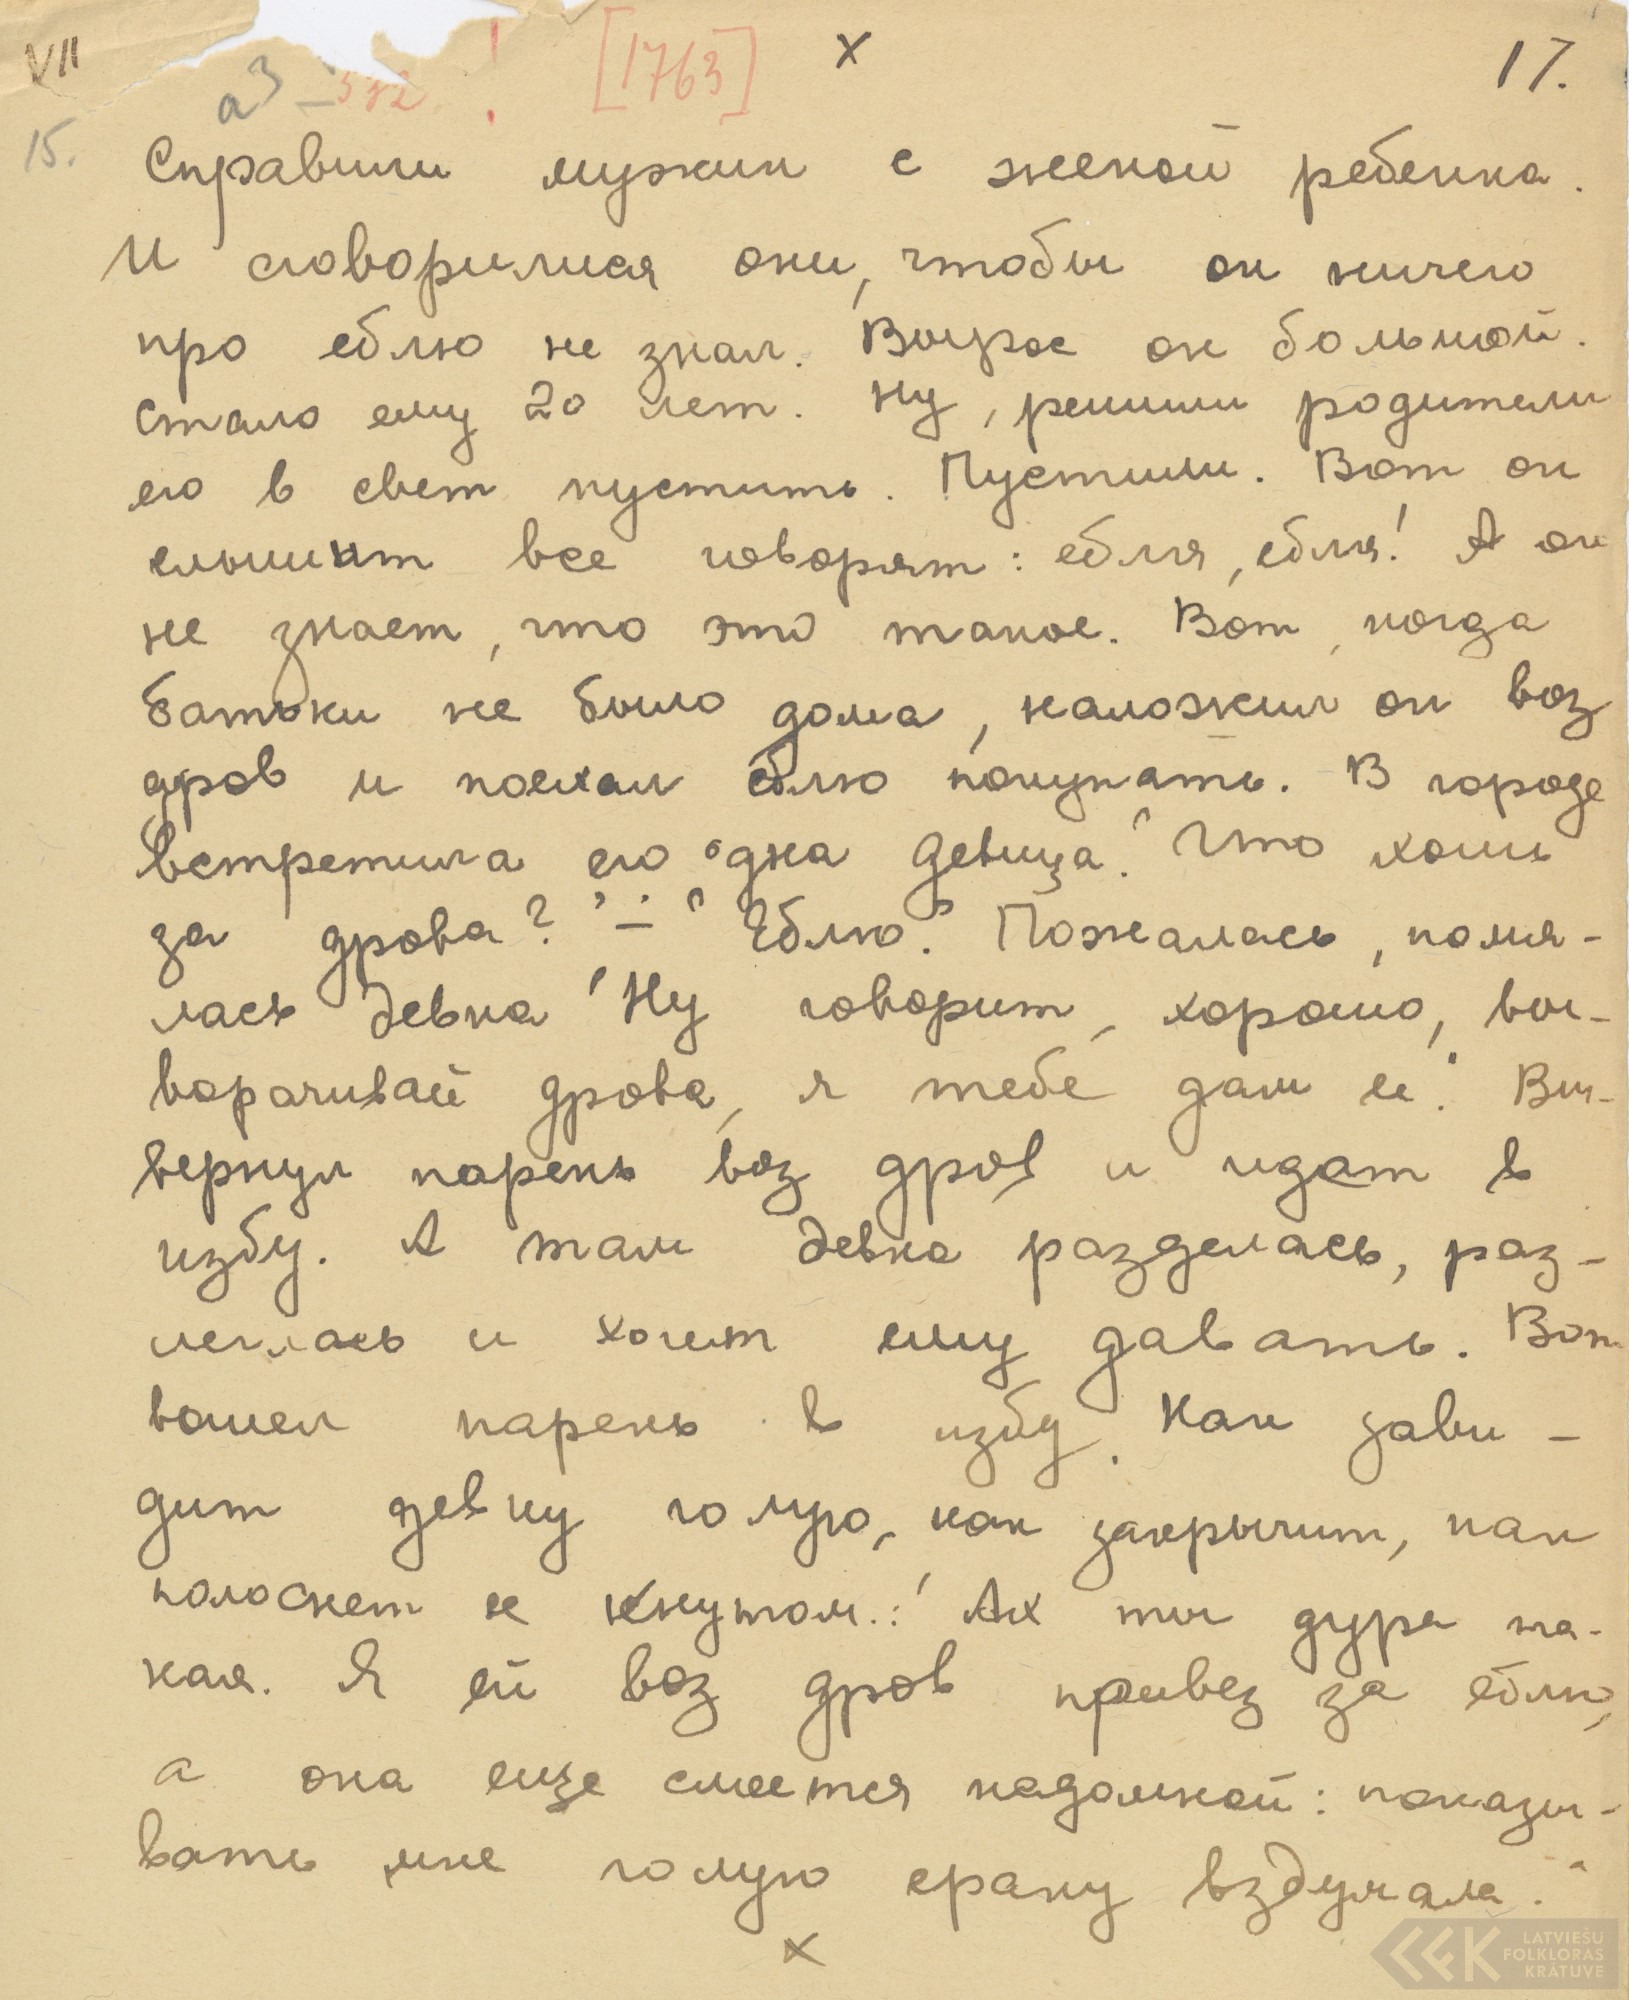 VII
a3 - 3
!
[1763]
x
17.
15.
Справили мужик с женой ребенка.
И сговорилися они, чтобы он ничего
про еблю не знал. Вырос он большой.
Стало ему 20 лет. Ну, решили родители
его в свет пустить. Пустили. Вот он
слышит все говорят: ебля, ебля! А он
не знает, что это такое. Вот, когда
батьки не было дома, наложил он воз
дров и поехал еблю покупать. В городе
встретила его одна девица. "Что хошь
за дрова?" – "Еблю." Пожалась, помя-
лась девка "Ну говорит, хорошо, вы-
ворачивай дрова, я тебе дам ее." Вы-
вернул парень воз дров и идет в
избу. А там девка разделась, раз-
леглась и хочет ему давать. Вот
вошел парень в избу. Как зави-
дит девку голую, как закричит, как
полоснет ее кнутом.: "Ах ты дура та-
кая. Я ей воз дров привез за еблю,
а она еще смеется надомной: показы-
вать мне голую сраку вздумала."
x
LATVIEŠU
FOLKLORAS
KRĀTUVE